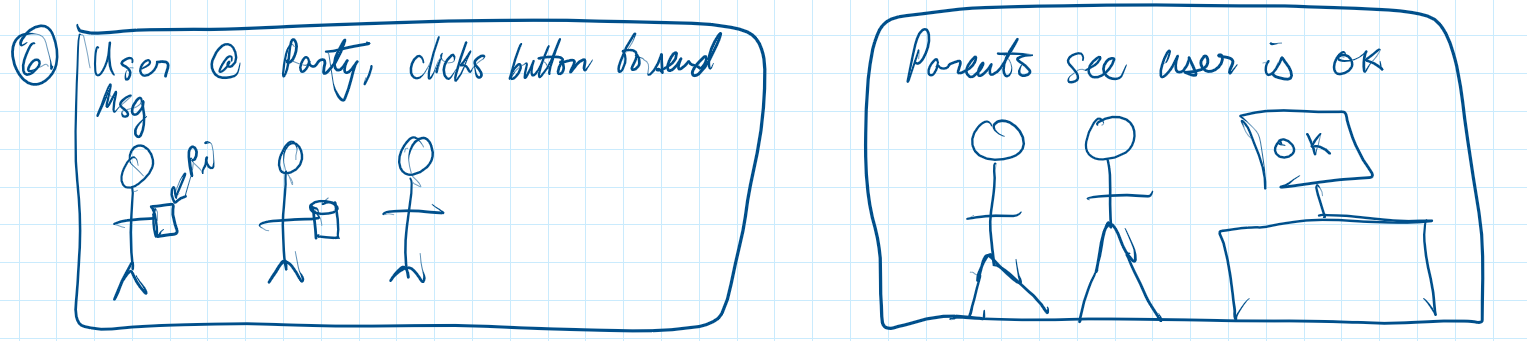 6
User @ Party, clicks button to send
Msg
Pi
Parents see user is OK
OK